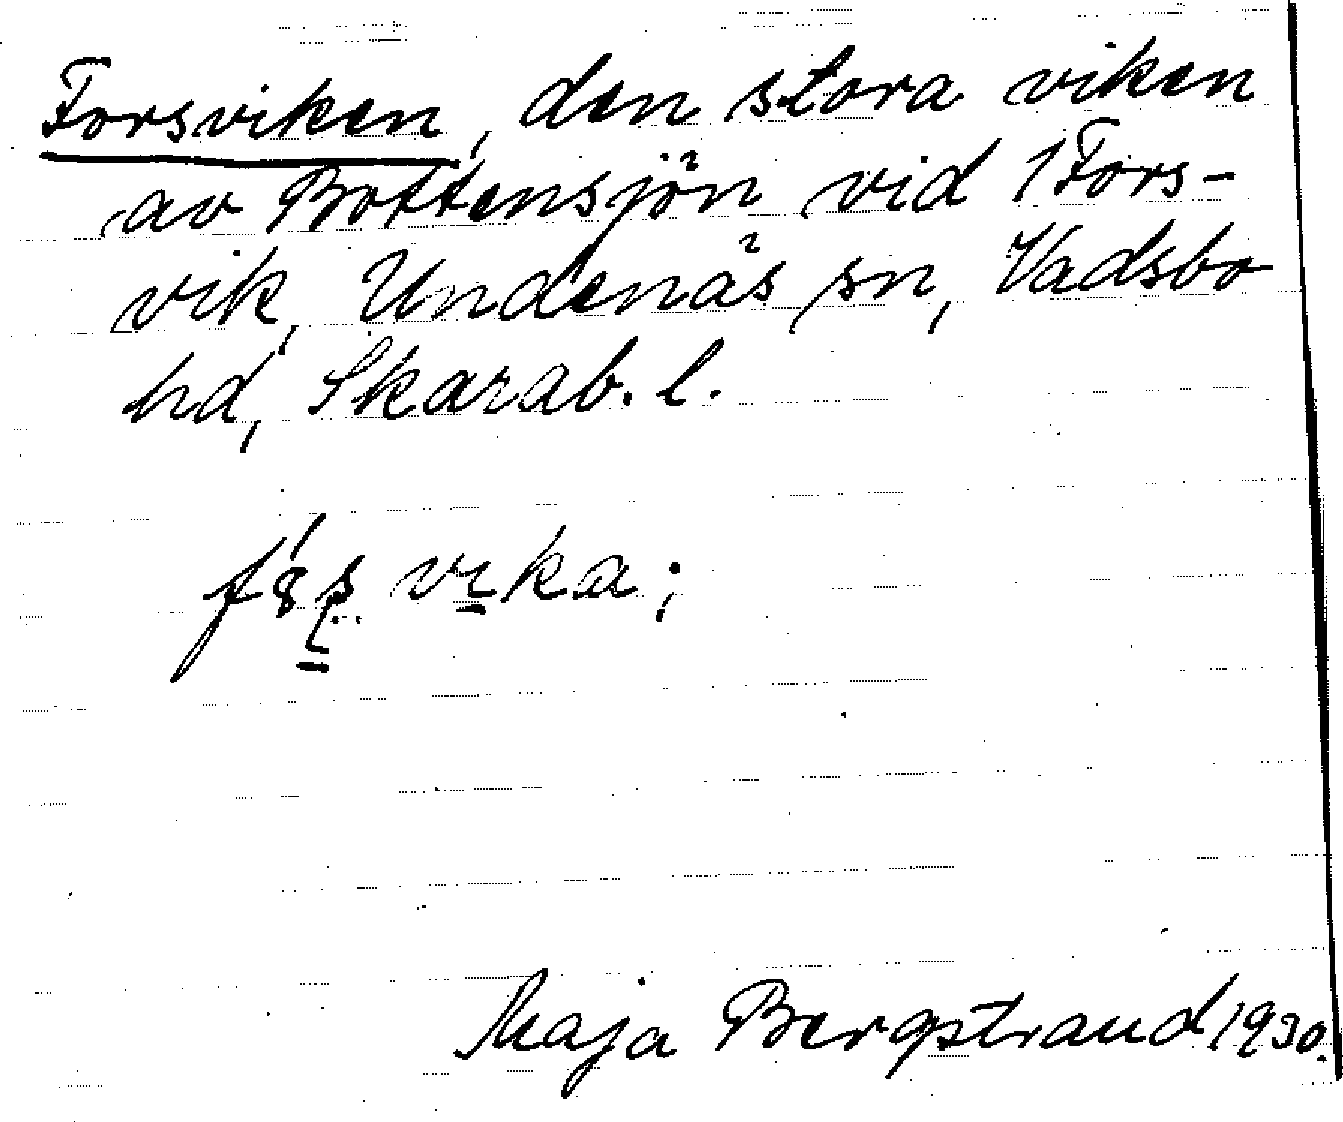 Forsviken, den stora viken
av Bottensjön vid 1 Fors-
vik, Undenäs sn, Vadsbo
hd, Skarab. l.
Maja Bergstrand 1930.